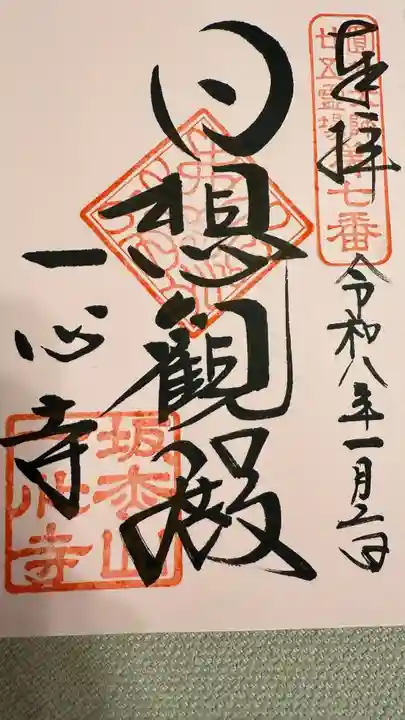 圓光大師
廿五霊場第七番
奉拝
令和八年一月二日
日想観殿
一心寺
坂松山
一心寺